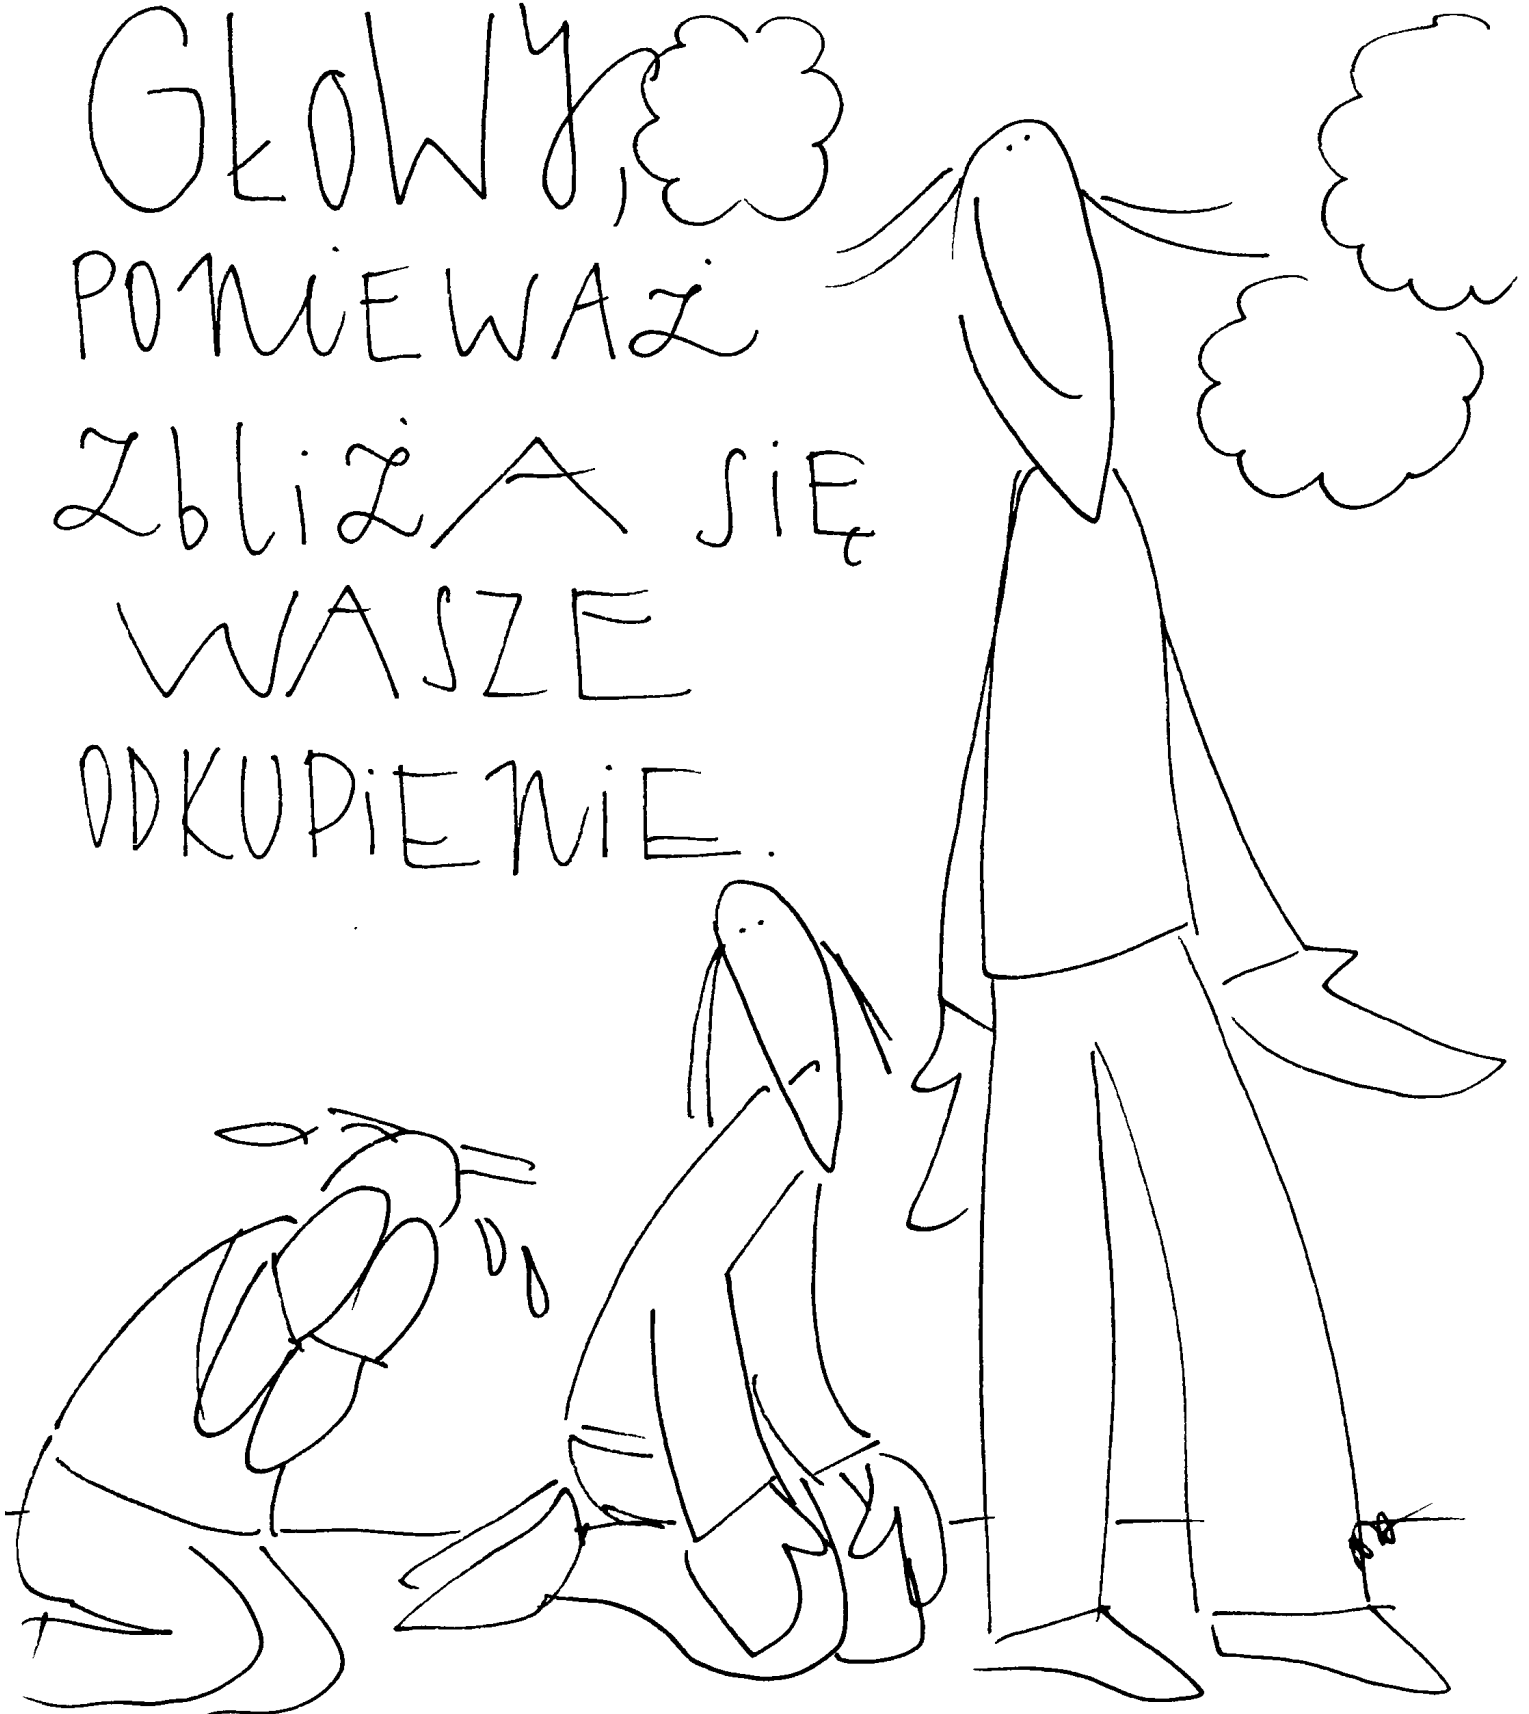 GŁOWY,
PONIEWAŻ
ZbliżA SiĘ
WASZE
ODKUPIENIE.